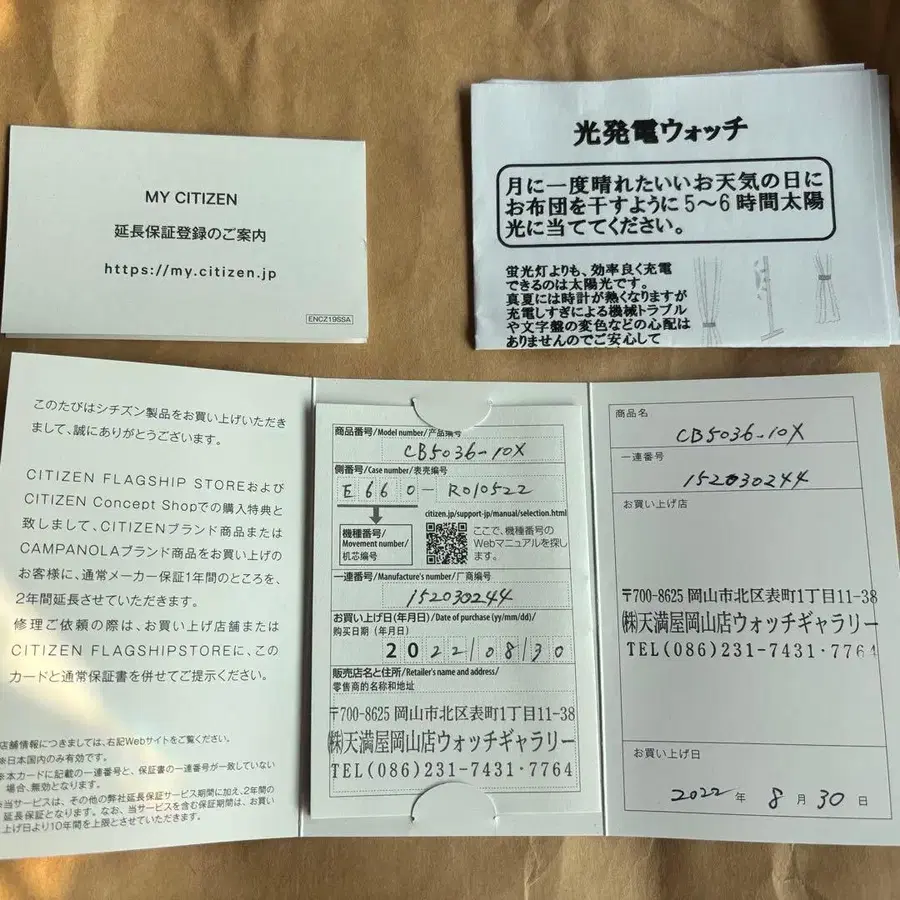 MY CITIZEN
延長保証登録のご案内
https://my.citizen.jp
ENCZ19SSA
光発電ウォッチ
月に一度晴れたいいお天気の日に
お布団を干すように5～6時間太陽
光に当ててください。
蛍光灯よりも、効率良く充電
できるのは太陽光です。
真夏には時計が熱くなりますが
充電しすぎによる機械トラブル
や文字盤の変色などの心配は
ありませんのでご安心して
このたびはシチズン製品をお買い上げいただき
まして、誠にありがとうございます。
CITIZEN FLAGSHIP STOREおよび
CITIZEN Concept Shopでの購入特典と
致しまして、CITIZENブランド商品または
CAMPANOLAブランド商品をお買い上げの
お客様に、通常メーカー保証1年間のところを、
2年間延長させていただきます。
修理ご依頼の際は、お買い上げ店舗または
CITIZEN FLAGSHIPSTOREに、この
カードと通常保証書を併せてご提示ください。
店舗情報につきましては、右記Webサイトをご覧ください。
※日本国内のみ有効です。
※本カードに記載の一連番号と、保証書の一連番号が一致していない
場合、無効となります。
※当サービスは、その他の弊社延長保証サービス期間に加え、2年間の
延長保証となります。なお、当サービスを含む保証期間は、お買い
上げ日より10年間を上限とさせていただきます。
商品番号/Model number/产品编号
CB5036-10X
側番号/Case number/表壳编号
E660-R010522
citizen.jp/support-jp/manual/selection.html
機種番号/
Movement number/
机芯编号
ここで、機種番号の
Webマニュアルを探し
ます。
一連番号/Manufacture's number/厂商编号
152030244
お買い上げ日(年月日)/Date of purchase (yy/mm/dd)/
购买日期（年月日）
2022/08/30
販売店名と住所/Retailer's name and address/
零售商的名称和地址
〒700-8625 岡山市北区表町1丁目11-38
㈱天満屋岡山店ウォッチギャラリー
TEL(086)231-7431・7764
商品名
CB5036-10X
一連番号
152030244
お買い上げ店
〒700-8625 岡山市北区表町1丁目11-38
㈱天満屋岡山店ウォッチギャラリー
TEL(086)231-7431・7764
お買い上げ日
2022年 8月 30日